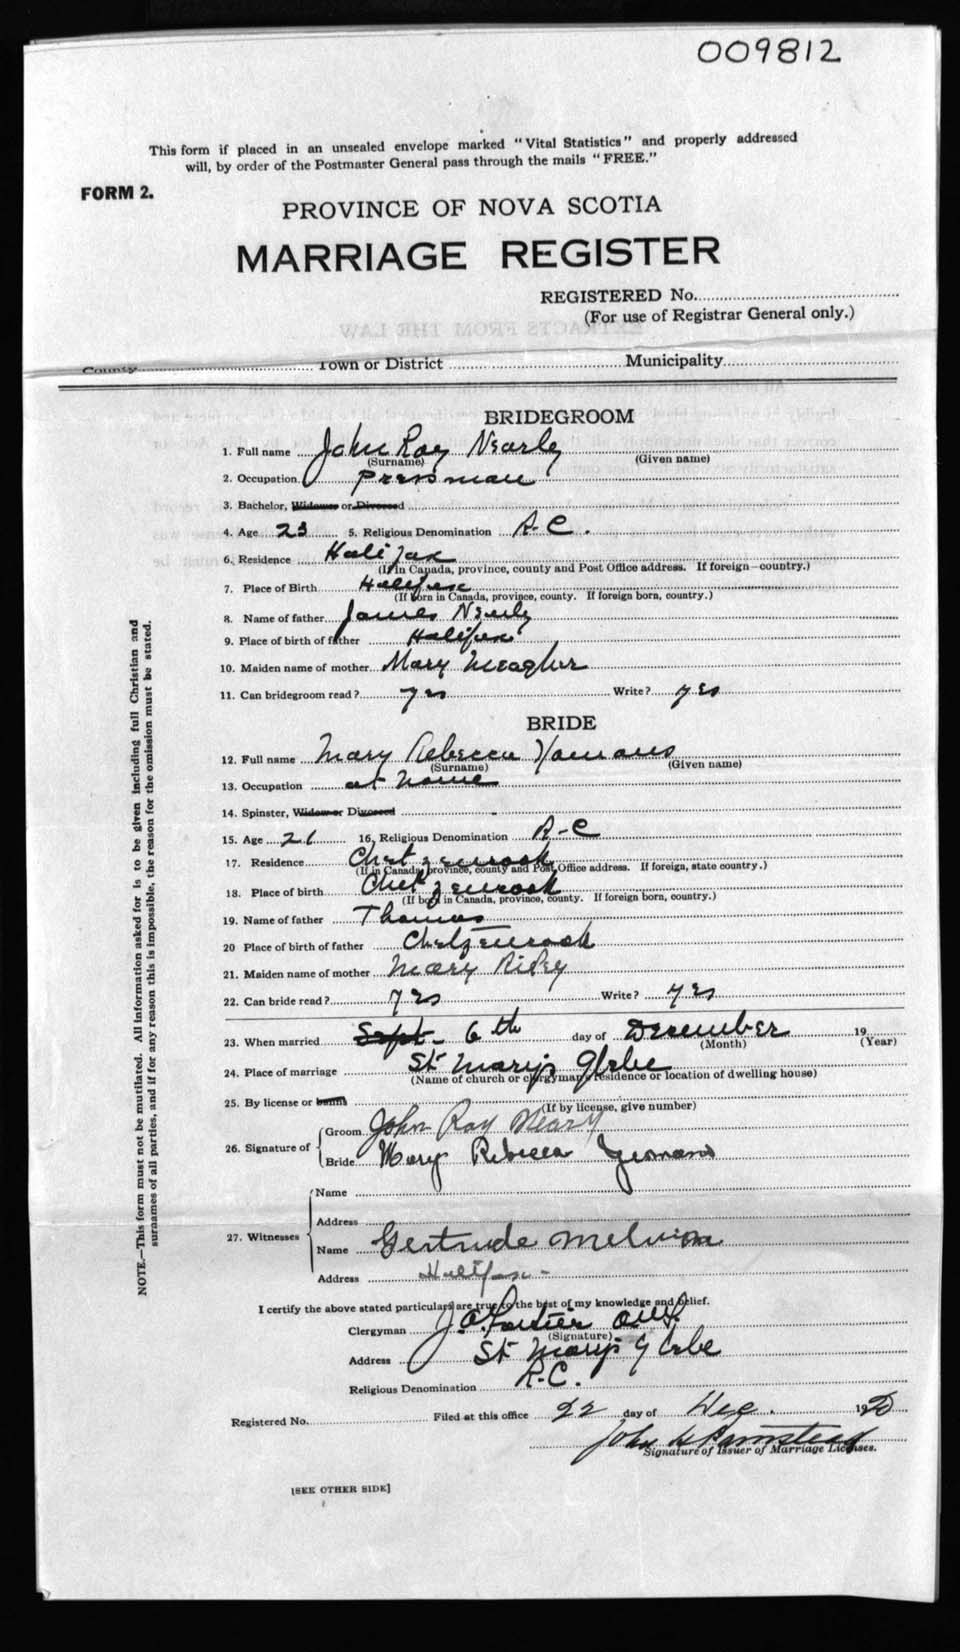 009812
This form if placed in an unsealed envelope marked "Vital Statistics" and properly addressed
will, by order of the Postmaster General pass through the mails "FREE."
FORM 2.
PROVINCE OF NOVA SCOTIA
MARRIAGE REGISTER
REGISTERED No.
(For use of Registrar General only.)
EXTRACTS FROM THE LAW
County Town or District Municipality
BRIDEGROOM
1. Full name John Roy Nearly
(Surname) (Given name)
2. Occupation Pressman
3. Bachelor, Widower or Divorced
4. Age 23 5. Religious Denomination R-C.
6. Residence Halifax
(If in Canada, province, county and Post Office address. If foreign—country.)
7. Place of Birth Halifax
(If born in Canada, province, county. If foreign born, country.)
8. Name of father James Nearly
9. Place of birth of father Halifax
10. Maiden name of mother Mary Meagher
11. Can bridegroom read? yes Write? yes
BRIDE
12. Full name Mary Rebecca
(Surname) (Given name)
13. Occupation at home
14. Spinster, Widow or Divorced
15. Age 21 16. Religious Denomination R-C
17. Residence Chetzencook
(If in Canada, province, county and Post Office address. If foreign, state country.)
18. Place of birth Chetzencook
(If born in Canada, province, county. If foreign born, country.)
19. Name of father Thomas
20 Place of birth of father Chetzencook
21. Maiden name of mother Mary
22. Can bride read? yes Write? yes
23. When married Sept- 6th day of December 19
(Month) (Year)
24. Place of marriage St Marys Glebe
(Name of church or clergyman's residence or location of dwelling house)
25. By license or banns
(If by license, give number)
26. Signature of Groom John Roy Neary
Bride Mary Rebecca Yeomans
27. Witnesses Name
Address
Name Gertrude Melvin
Address Halifax-
I certify the above stated particulars are true to the best of my knowledge and belief.
Clergyman J.A.
(Signature)
Address St Marys Glebe
Religious Denomination R-C.
Registered No. Filed at this office 22 day of Dec. 1920
John H Barnstead
Signature of Issuer of Marriage Licenses.
[SEE OTHER SIDE]
NOTE.—This form must not be mutilated. All information asked for is to be given including full Christian and
surnames of all parties, and if for any reason this is impossible, the reason for the omission must be stated.